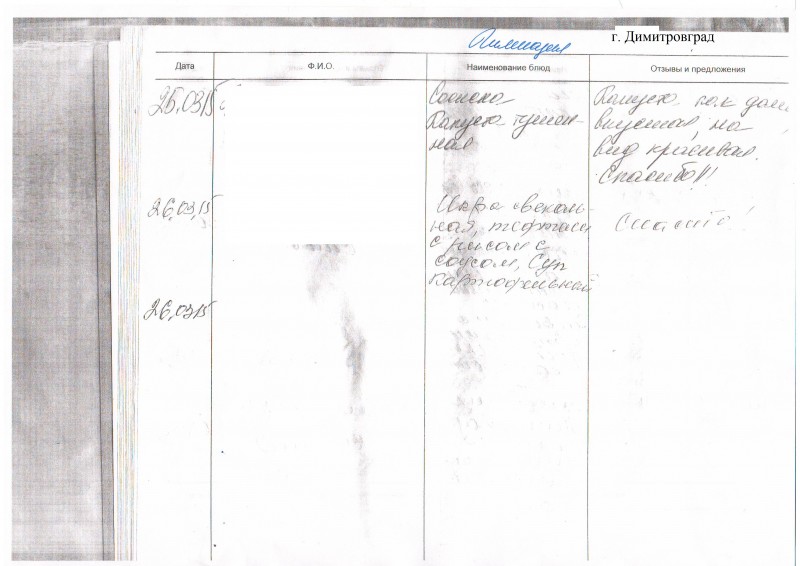 Гимназия
г. Димитровград
Дата
Ф.И.О.
Наименование блюд
Отзывы и предложения
25.03.15
Сосиска
Капуста тушен-
ная
Капуста, как дома
вкусная, на
вид красивая.
Спасибо!!!
26.03.15
Икра свеколь-
ная, тефтели
с рисом с
соусом, Суп
картофельный
Спасибо!
26.03.15